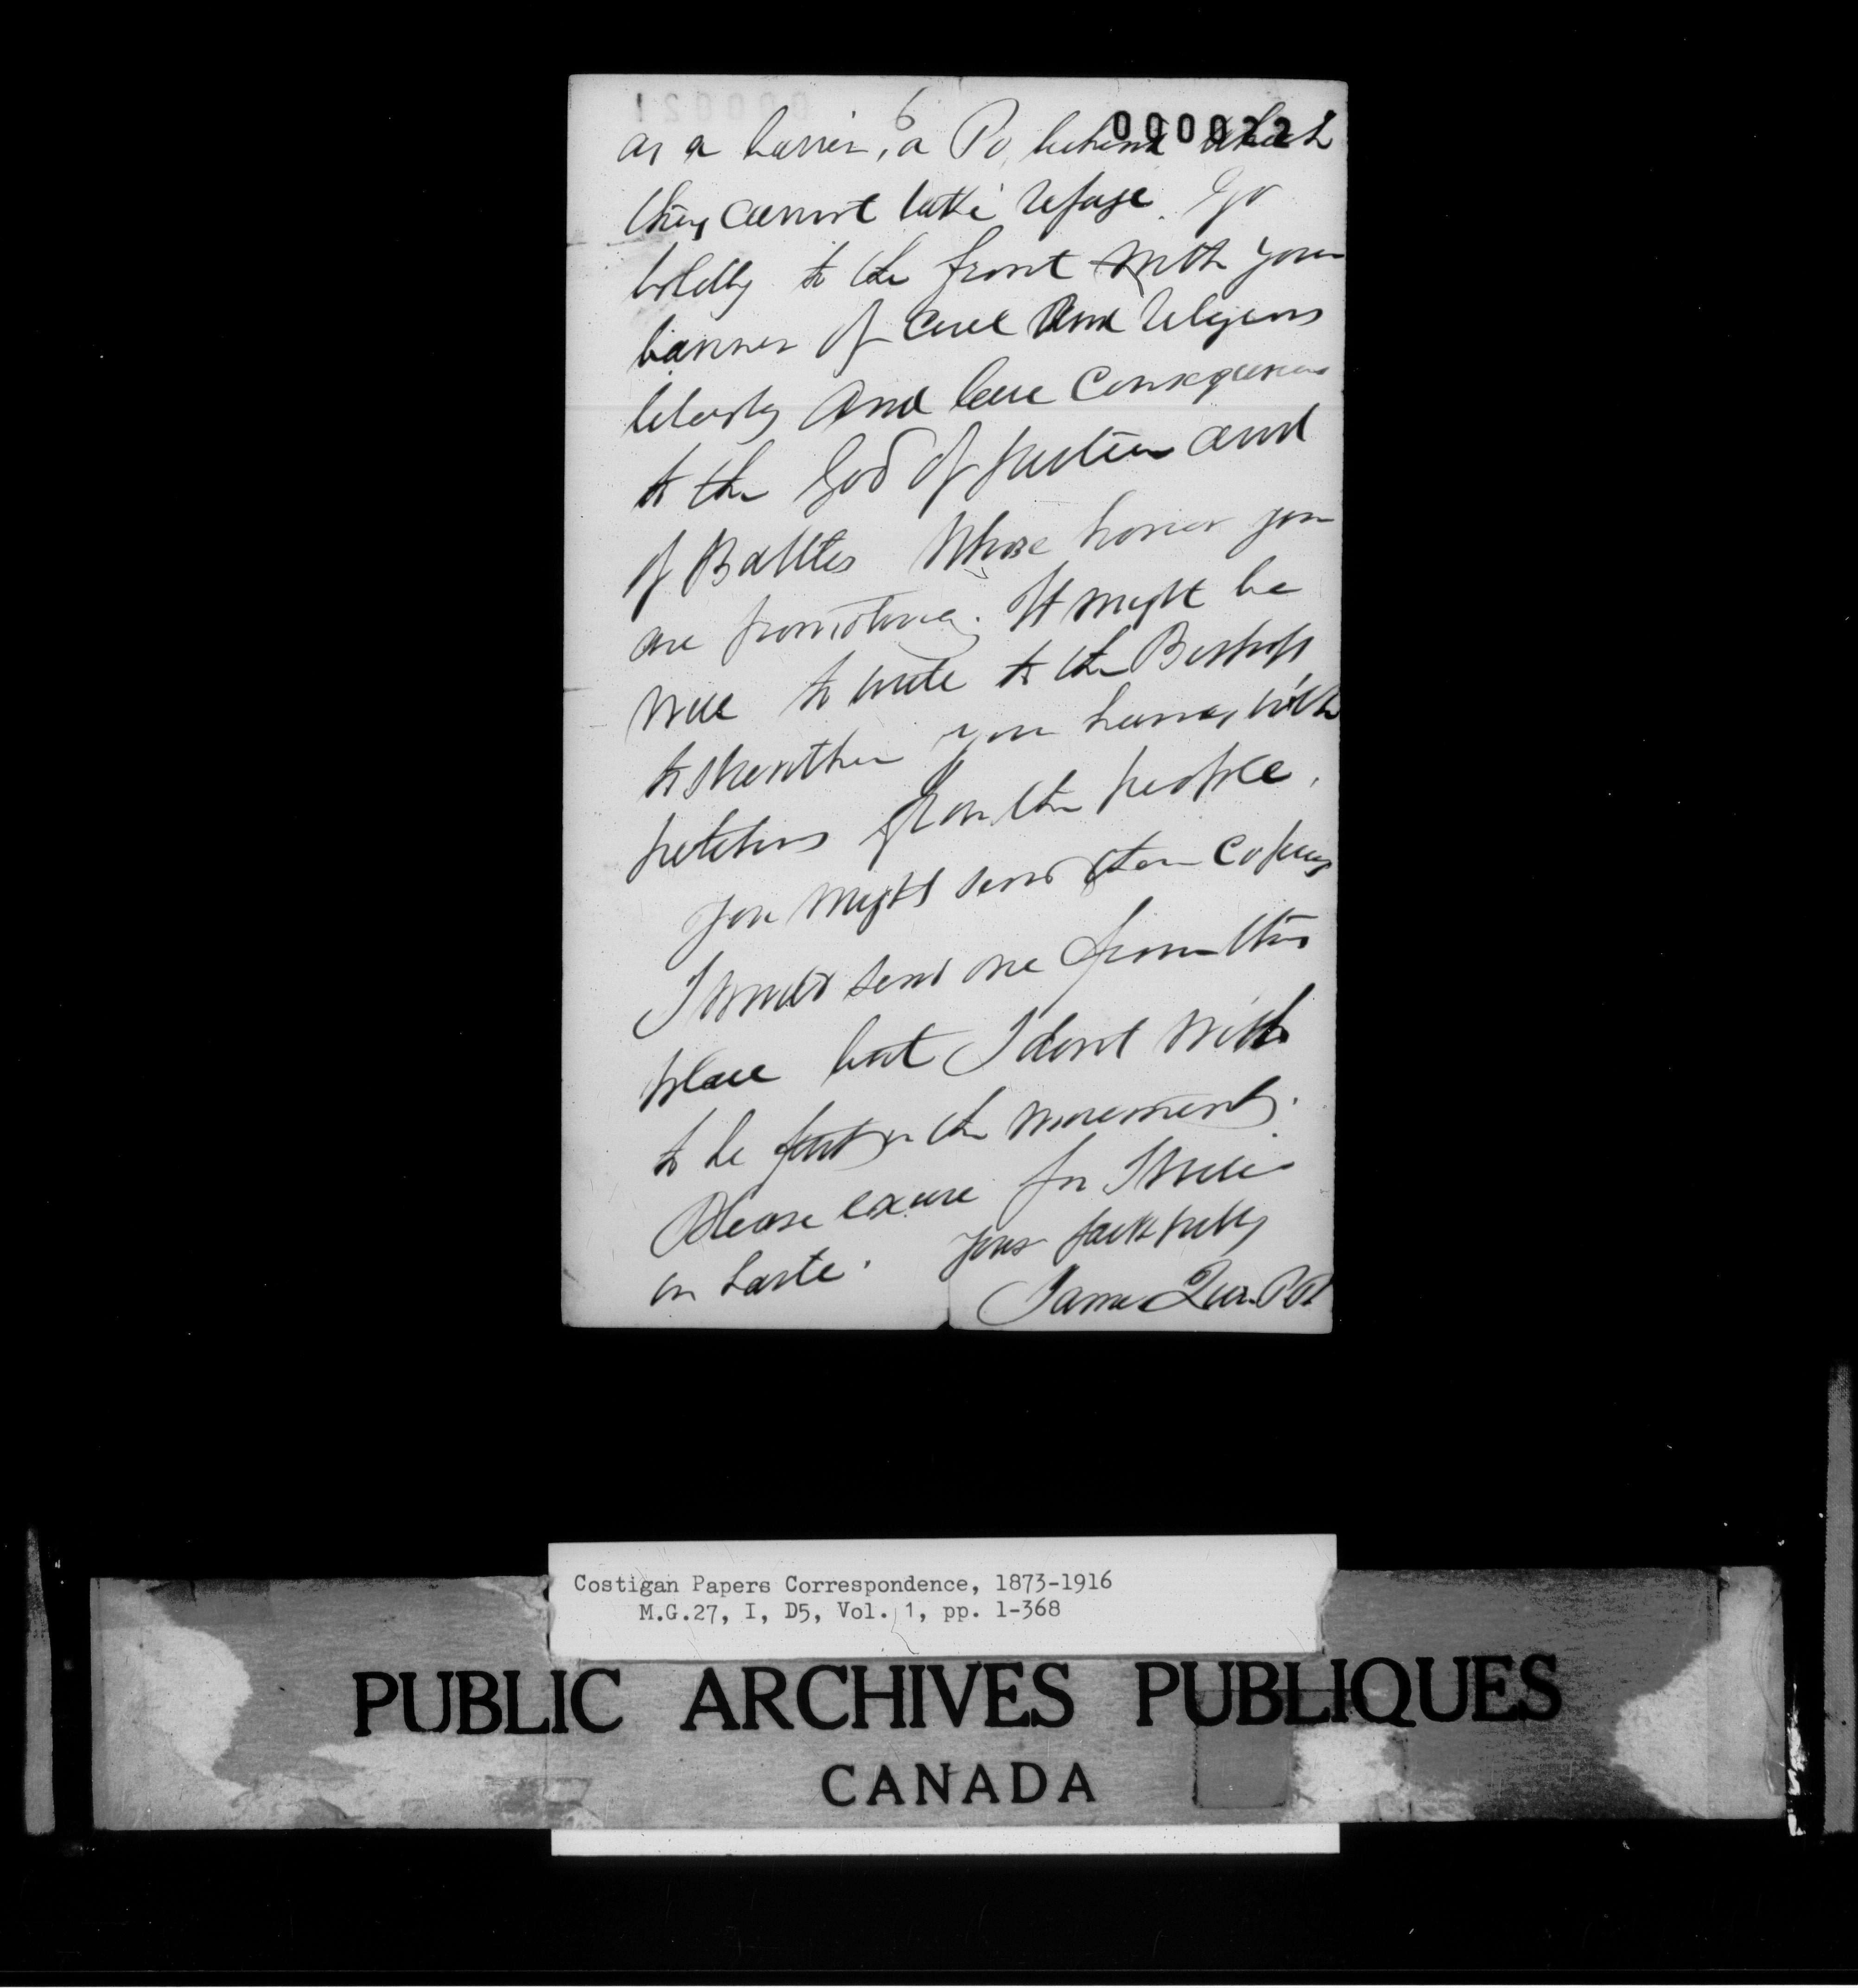 6
000022
as a barrier, a Po, behind which
they cannot take refuge. Go
boldly to the front with your
banner of Civil and religious
liberty and leave consequences
to the God of justice and
of Battles whose honor you
are promoting. It might be
well to write to the Bishops
to strengthen your hands with
petitions from the people.
You might send them copies
I would send one from this
place but I dont wish
to be first in the movement.
Please excuse for I write
in haste. Yours faithfully
James Quin Pst
Costigan Papers Correspondence, 1873-1916
M.G.27, I, D5, Vol. 1, pp. 1-368
PUBLIC ARCHIVES PUBLIQUES
CANADA